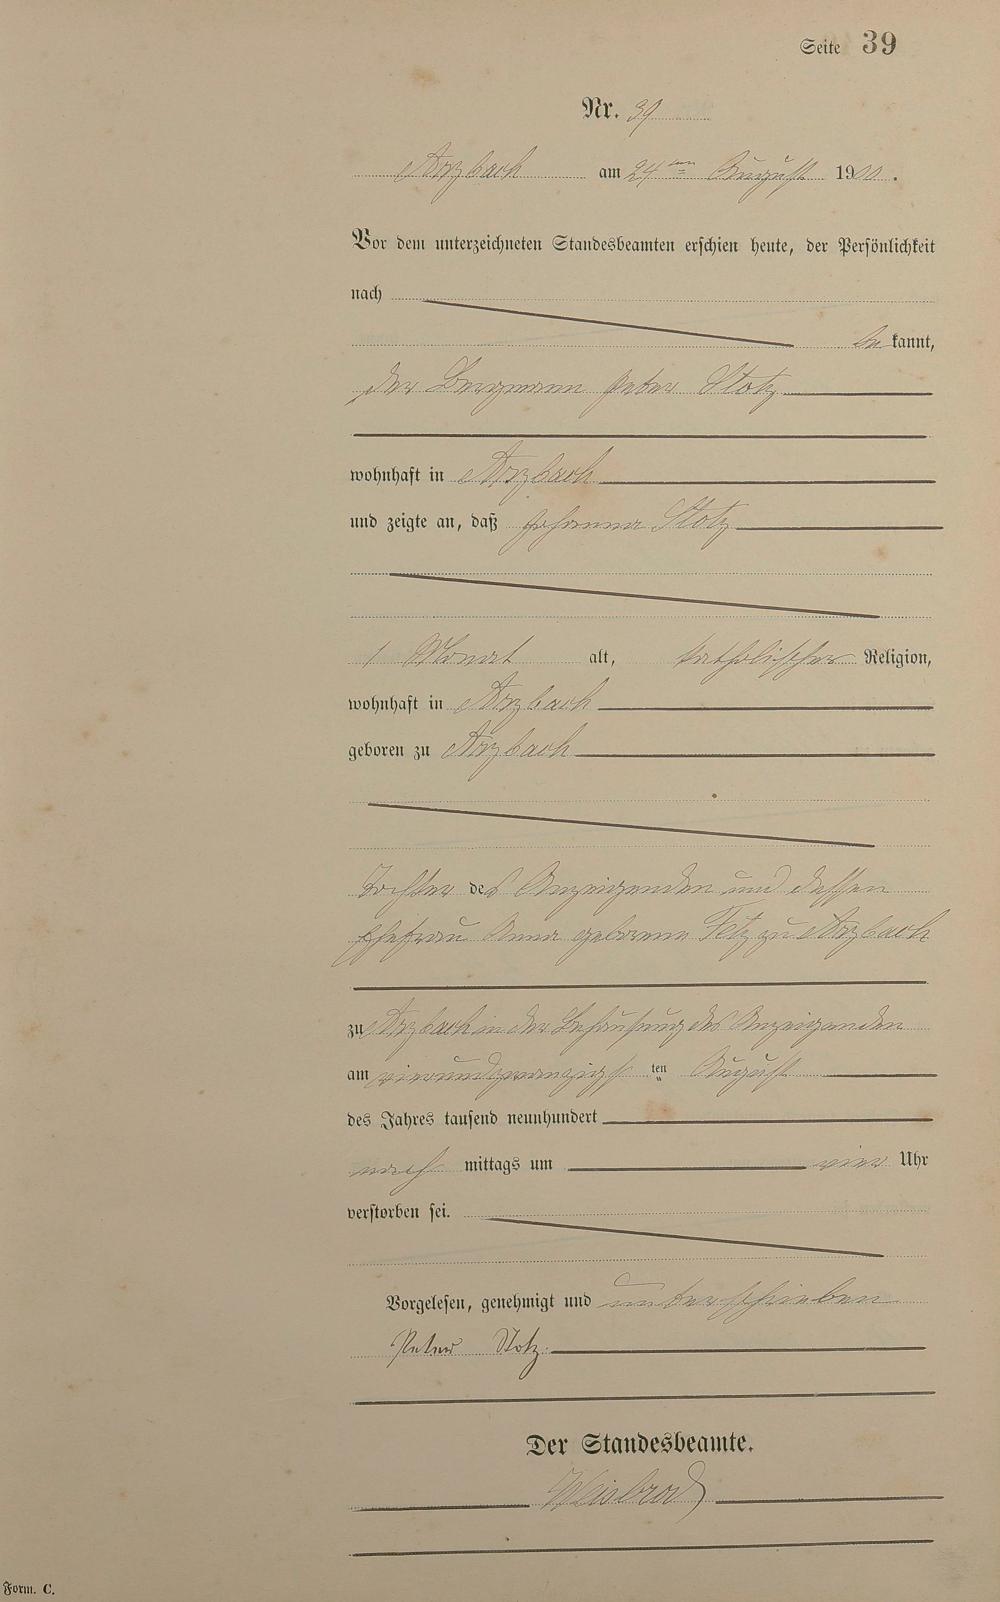 Seite 39
Nr. 39
Arzbach am 24ten August 1900.
Vor dem unterzeichneten Standesbeamten erschien heute, der Persönlichkeit
nach
be kannt,
der Bergmann Peter Stotz
wohnhaft in Arzbach
und zeigte an, daß Johanna Stotz
1 Monat alt, katholischer Religion,
wohnhaft in Arzbach
geboren zu Arzbach
Tochter des Anzeigenden und dessen
Ehefrau Anna geborene zu Arzbach
zu Arzbach in der Behausung des Anzeigenden
am vierundzwanzigs ten August
des Jahres tausend neunhundert
nach mittags um vier Uhr
verstorben sei.
Vorgelesen, genehmigt und unterschrieben
Peter Stotz.
Der Standesbeamte.
Weisbrod
Form. C.